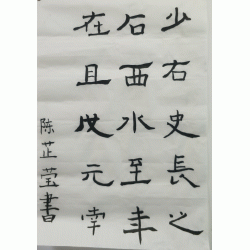 少右史長之
石西水至年
在且戊元幸
陈芷莹書